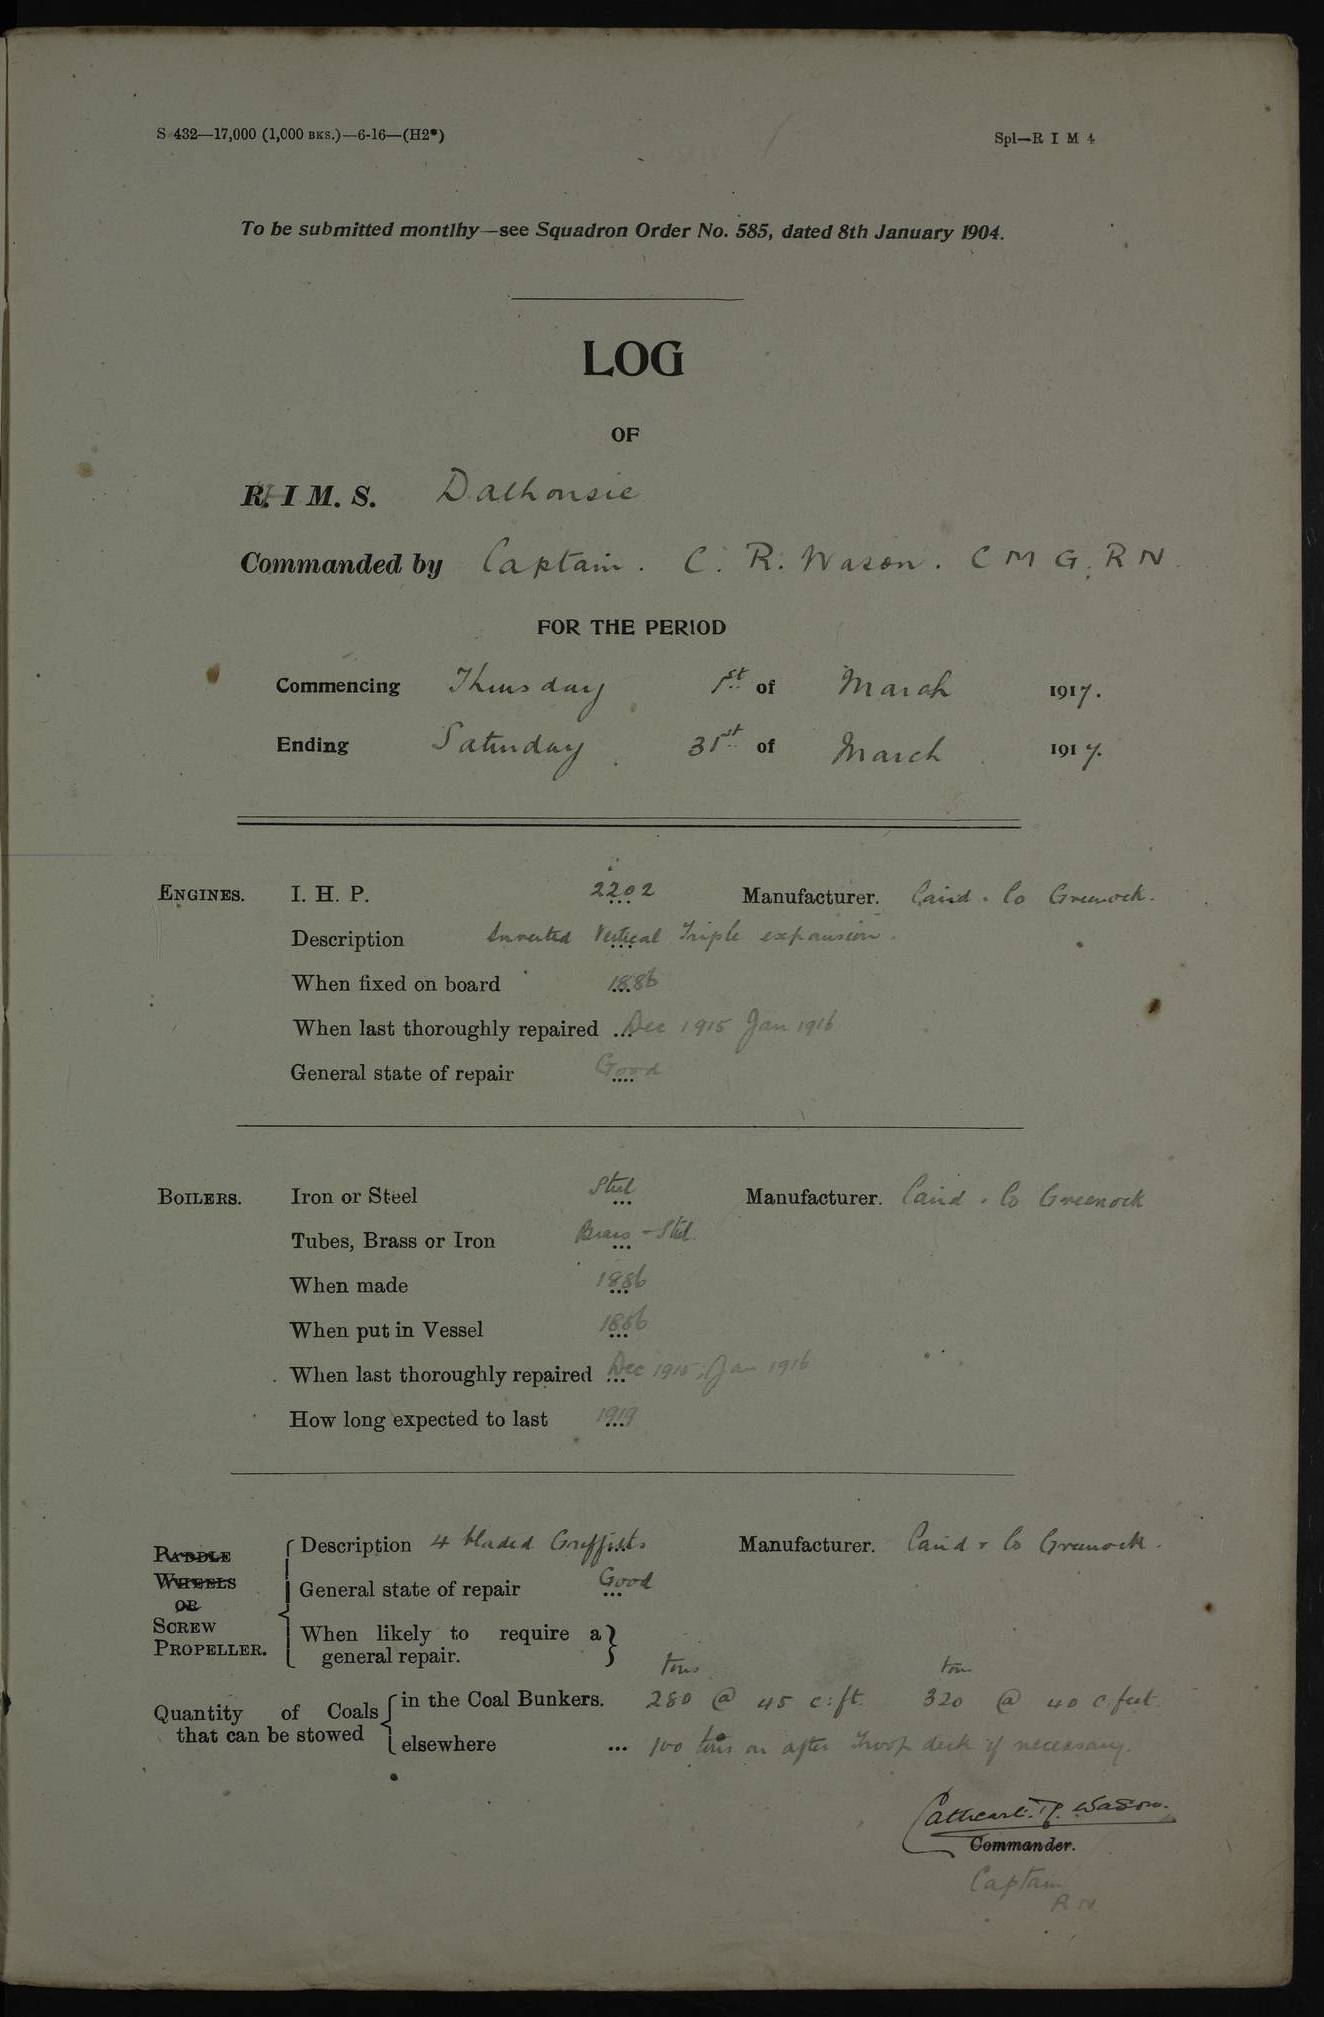 S 432—17,000 (1,000 BKS.)—6-16—(H2*)
Spl—R I M 4
To be submitted montlhy—see Squadron Order No. 585, dated 8th January 1904.
LOG
OF
R. I M. S. Dalhousie
Commanded by Captain. C. R. Wason. C M G, R N.
FOR THE PERIOD
Commencing Thursday 1st of March 1917.
Ending Saturday 31st of March 1917.
ENGINES. I. H. P. ... 2202 Manufacturer. Caird & Co Greenock.
Description ... Inverted Vertical Triple expansion.
When fixed on board ... 1886
When last thoroughly repaired ... Dec 1915 Jan 1916
General state of repair .... Good
BOILERS. Iron or Steel ... Steel Manufacturer. Caird & Co Greenock
Tubes, Brass or Iron ... Brass - Steel.
When made ... 1886
When put in Vessel ... 1886
When last thoroughly repaired ... Dec 1915, Jan 1916
How long expected to last ... 1919
PADDLE WHEELS OR SCREW PROPELLER.
Description 4 bladed Griffiths Manufacturer. Caird & Co Greenock.
General state of repair ... Good
When likely to require a general repair.
tons tons
Quantity of Coals that can be stowed
in the Coal Bunkers. 280 @ 45 c:ft. 320 @ 40 c. feet
elsewhere ... 100 tons on after Troop deck if necessary.
Cathcart R. Wason.
Commander.
Captain
R N